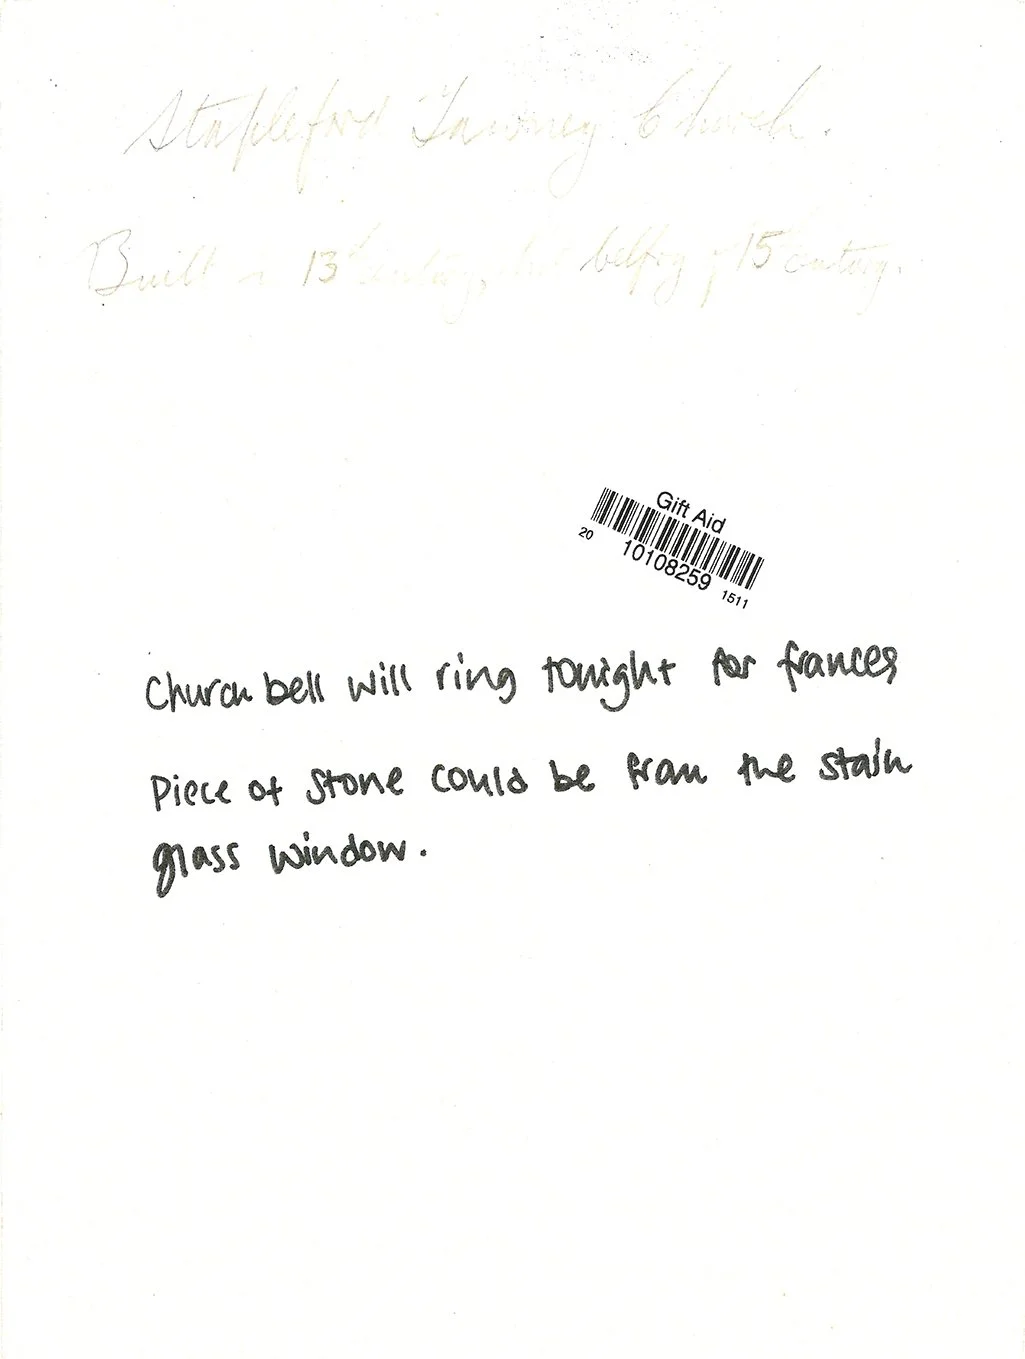 Stapleford Tawney Church.
Built in 13th century, but belfry of 15th century.
Gift Aid
20 10108259 1511
Church bell will ring tonight for frances
Piece of stone could be from the stain
glass window.